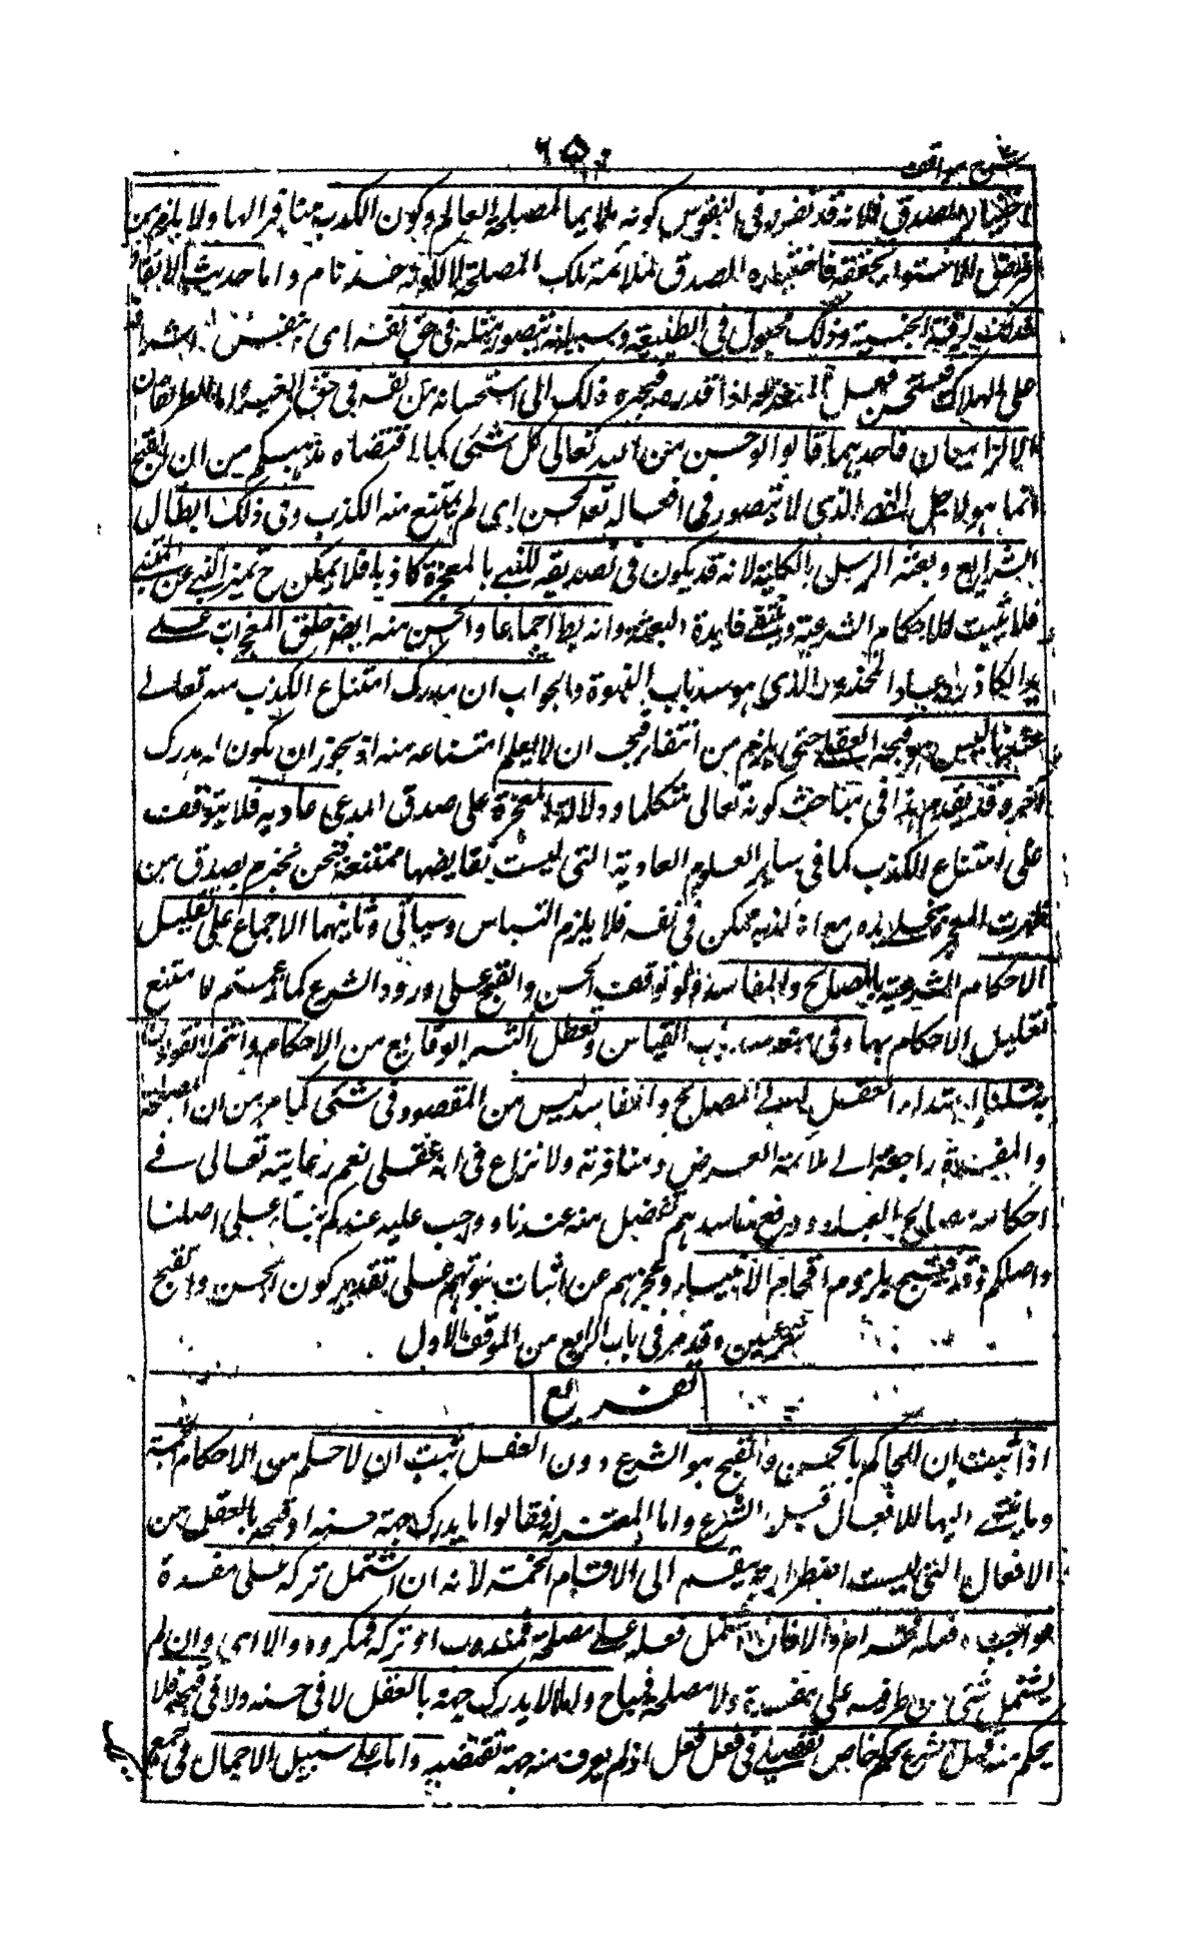 شرح مواقف
اختيار الصدق فلانه قد تقرر في النفوس كونه ملايما لمصلحة العالم وكون الكذب منافرا لها ولا يلزم من
فرض الاستواء تحققه فاختياره الصدق لملائمة تلك المصلحة لا لكونه حسنا تامر واما حديث الانقاذ
فذلك لرقة الجنسية وذلك مجبول في الطبيعة وسببه انه يتصور مثله في حق نفسه اى اشرا
على الهلاك فيستحسن فعل المنقذ له اذا قدره فيجره ذلك الى استحسانه من نفسه في حق الغير واما الطريقان
الالزاميان فاحدهما قالوا لو حسن من الله تعالى كل شئ كما اقتضاه مذهبكم من ان القبح
انما هو لاجل النهي الذي لا يتصور في افعاله تعالى لحسن اى لم يمتنع منه الكذب وفي ذلك ابطال
الشرايع وبعثة الرسل بالكلية لانه قد يكون في تصديقه للنبي بالمعجزة كاذبا فلا يمكن ح تميز النبي عن المتنبي
فلا يثبت للاحكام الشرعية وينتفي فايدة البعثة وانه بط اجماعا ولحسن منه ايضا خلق المعجزات على
يد الكاذب وعاد المحذور الذي هو سد باب النبوة والجواب ان مدرك امتناع الكذب منه تعالى
عندنا ليس هو قبحه العقلي حتى يلزم من انتفاء قبحه ان لا يعلم امتناعه منه اذ يجوز ان يكون له مدرك
آخر وقد تقدم هذا في مباحث كونه تعالى متكلما ودلالة المعجزة على صدق المدعى عادية فلا يتوقف
على امتناع الكذب كما في ساير العلوم العادية التي ليست نقايضها ممتنعة فنحن نجزم بصدق من
ظهرت المعجزة على يده مع ان كذبه ممكن في نفسه فلا يلزم التباس وسيأتي وثانيهما الاجماع على تعليل
الاحكام الشرعية بالمصالح والمفاسد ولو توقف الحسن والقبح على ورود الشرع كما زعمتم لامتنع
تعليل الاحكام بها وفي منعه سد باب القياس وتعطل اكثر الوقايع من الاحكام وانتم لا تقولون
به قلنا اهتداء العقل الى المصالح والمفاسد ليس من المقصود في شئ كما مر من ان المصلحة
والمفسدة راجعة الى ملائمة الغرض ومنافرته ولا نزاع في انه عقلي نعم رعايته تعالى في
احكامه مصالح العباد ودفع مفاسدهم تفضل منه عندنا وواجب عليه عندكم بناء على اصلنا
واصلكم وقد يحتج بلزوم افحام الانبياء وعجزهم عن اثبات نبوتهم على تقدير كون الحسن والقبح
شرعيين وقد مر في باب الرابع من الموقف الاول
تفريع
اذا ثبت ان الحاكم بالحسن والقبح هو الشرع دون العقل ثبت ان لا حكم من الاحكام الخمسة
وما ينتمي اليها للافعال قبل الشرع واما المعتزلة فقالوا ما يدرك جهة حسنه او قبحه بالعقل من
الافعال التي ليست اضطرارية ينقسم الى الاقسام الخمسة لانه ان اشتمل تركه على مفسدة
فواجب او فعله فحرام والا فان اشتمل فعله على مصلحة فمندوب او تركه فمكروه والا اى وان لم
يشتمل شئ من طرفيه على مفسدة ولا مصلحة فمباح واما ما لا يدرك جهة بالعقل لا في حسنه ولا في قبحه فلا
يحكم فيه قبل الشرع بحكم خاص تفصيلي في فعل فعل اذ لم يعرف منه جهة تقتضيه واما على سبيل الاجمال في جميع